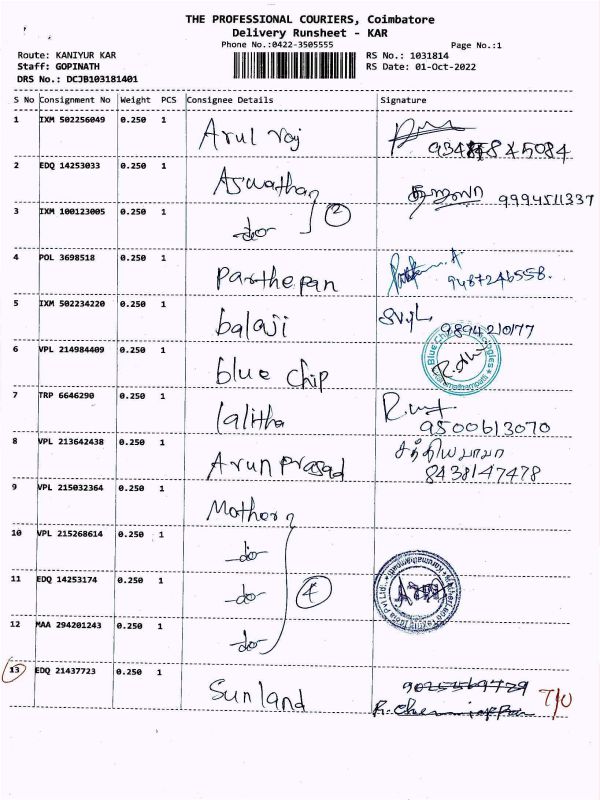 THE PROFESSIONAL COURIERS, Coimbatore
Delivery Runsheet - KAR
Phone No.:0422-3505555
Page No.:1
Route: KANIYUR KAR
RS No.: 1031814
Staff: GOPINATH
RS Date: 01-Oct-2022
DRS No.: DCJB103181401
S No Consignment No Weight PCS Consignee Details Signature
1 IXM 502256049 0.250 1 Arul raj
2 EDQ 14253033 0.250 1 Aswathan 9994511337
3 IXM 100123005 0.250 1 -do- 2
4 POL 3698518 0.250 1 Parthepan 9487246558.
5 IXM 502234220 0.250 1 balaji 9894210177
6 VPL 214984409 0.250 1 blue chip
7 TRP 6646290 0.250 1 lalitha 9500613070
8 VPL 213642438 0.250 1 Arun prasad சத்தியபாமா
8438147478
9 VPL 215032364 0.250 1 Mother
10 VPL 215268614 0.250 1 -do-
11 EDQ 14253174 0.250 1 -do- 4
12 MAA 294201243 0.250 1 -do-
13 EDQ 21437723 0.250 1 Sunland T/O